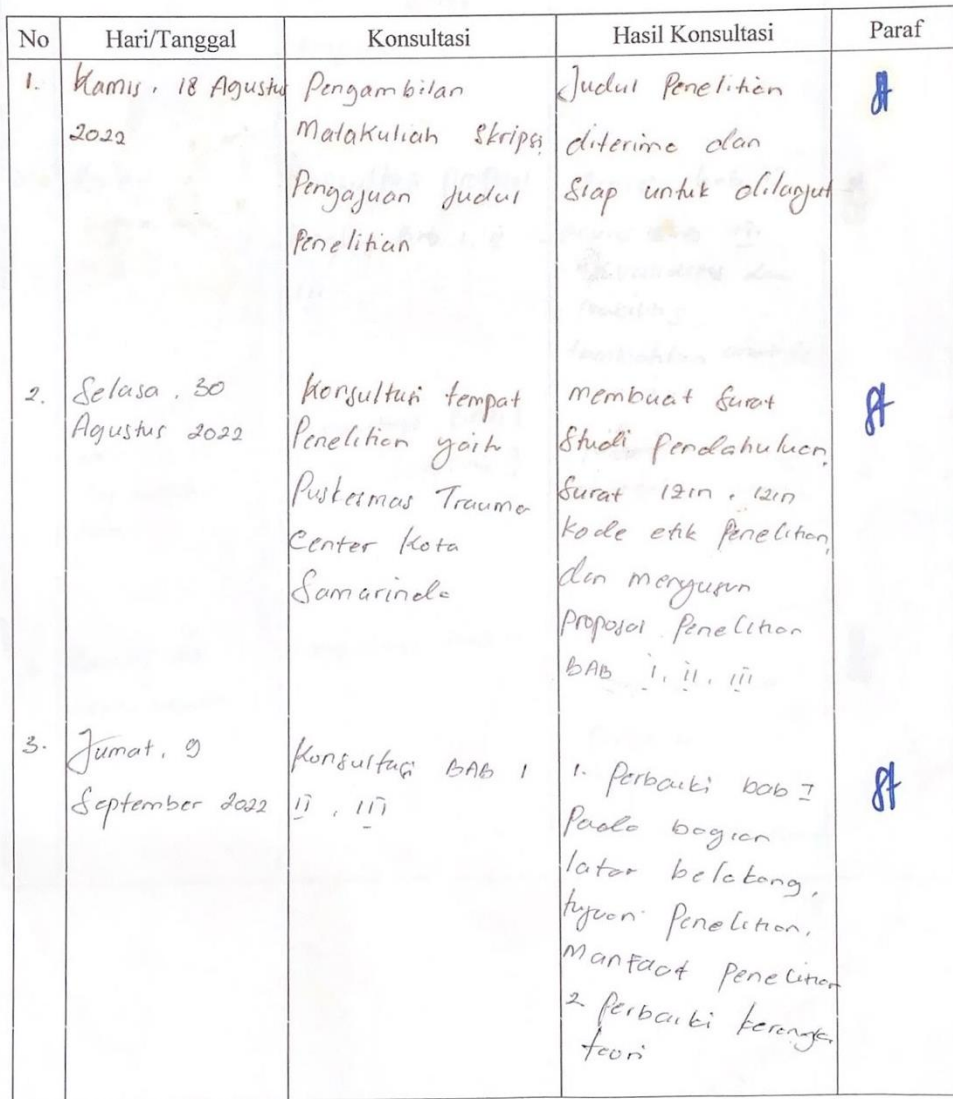 No Hari/Tanggal Konsultasi Hasil Konsultasi Paraf
1. Kamis, 18 Agustus
2022
Pengambilan
Matakuliah Skripsi
Pengajuan Judul
Penelitian
Judul Penelitian
diterima dan
Siap untuk dilanjut
2. Selasa, 30
Agustus 2022
Konsultasi tempat
Penelitian yaitu
Puskesmas Trauma
Center Kota
Samarinda
membuat Surat
Studi Pendahuluan,
Surat izin, izin
Kode etik Penelitian,
dan menyusun
Proposal Penelitian
BAB I, II, III
3. Jumat, 9
September 2022
Konsultasi BAB I
II, III
1. Perbaiki bab I
Pada bagian
latar belakang,
tujuan Penelitian,
Manfaat Penelitian
2 Perbaiki kerangka
teori